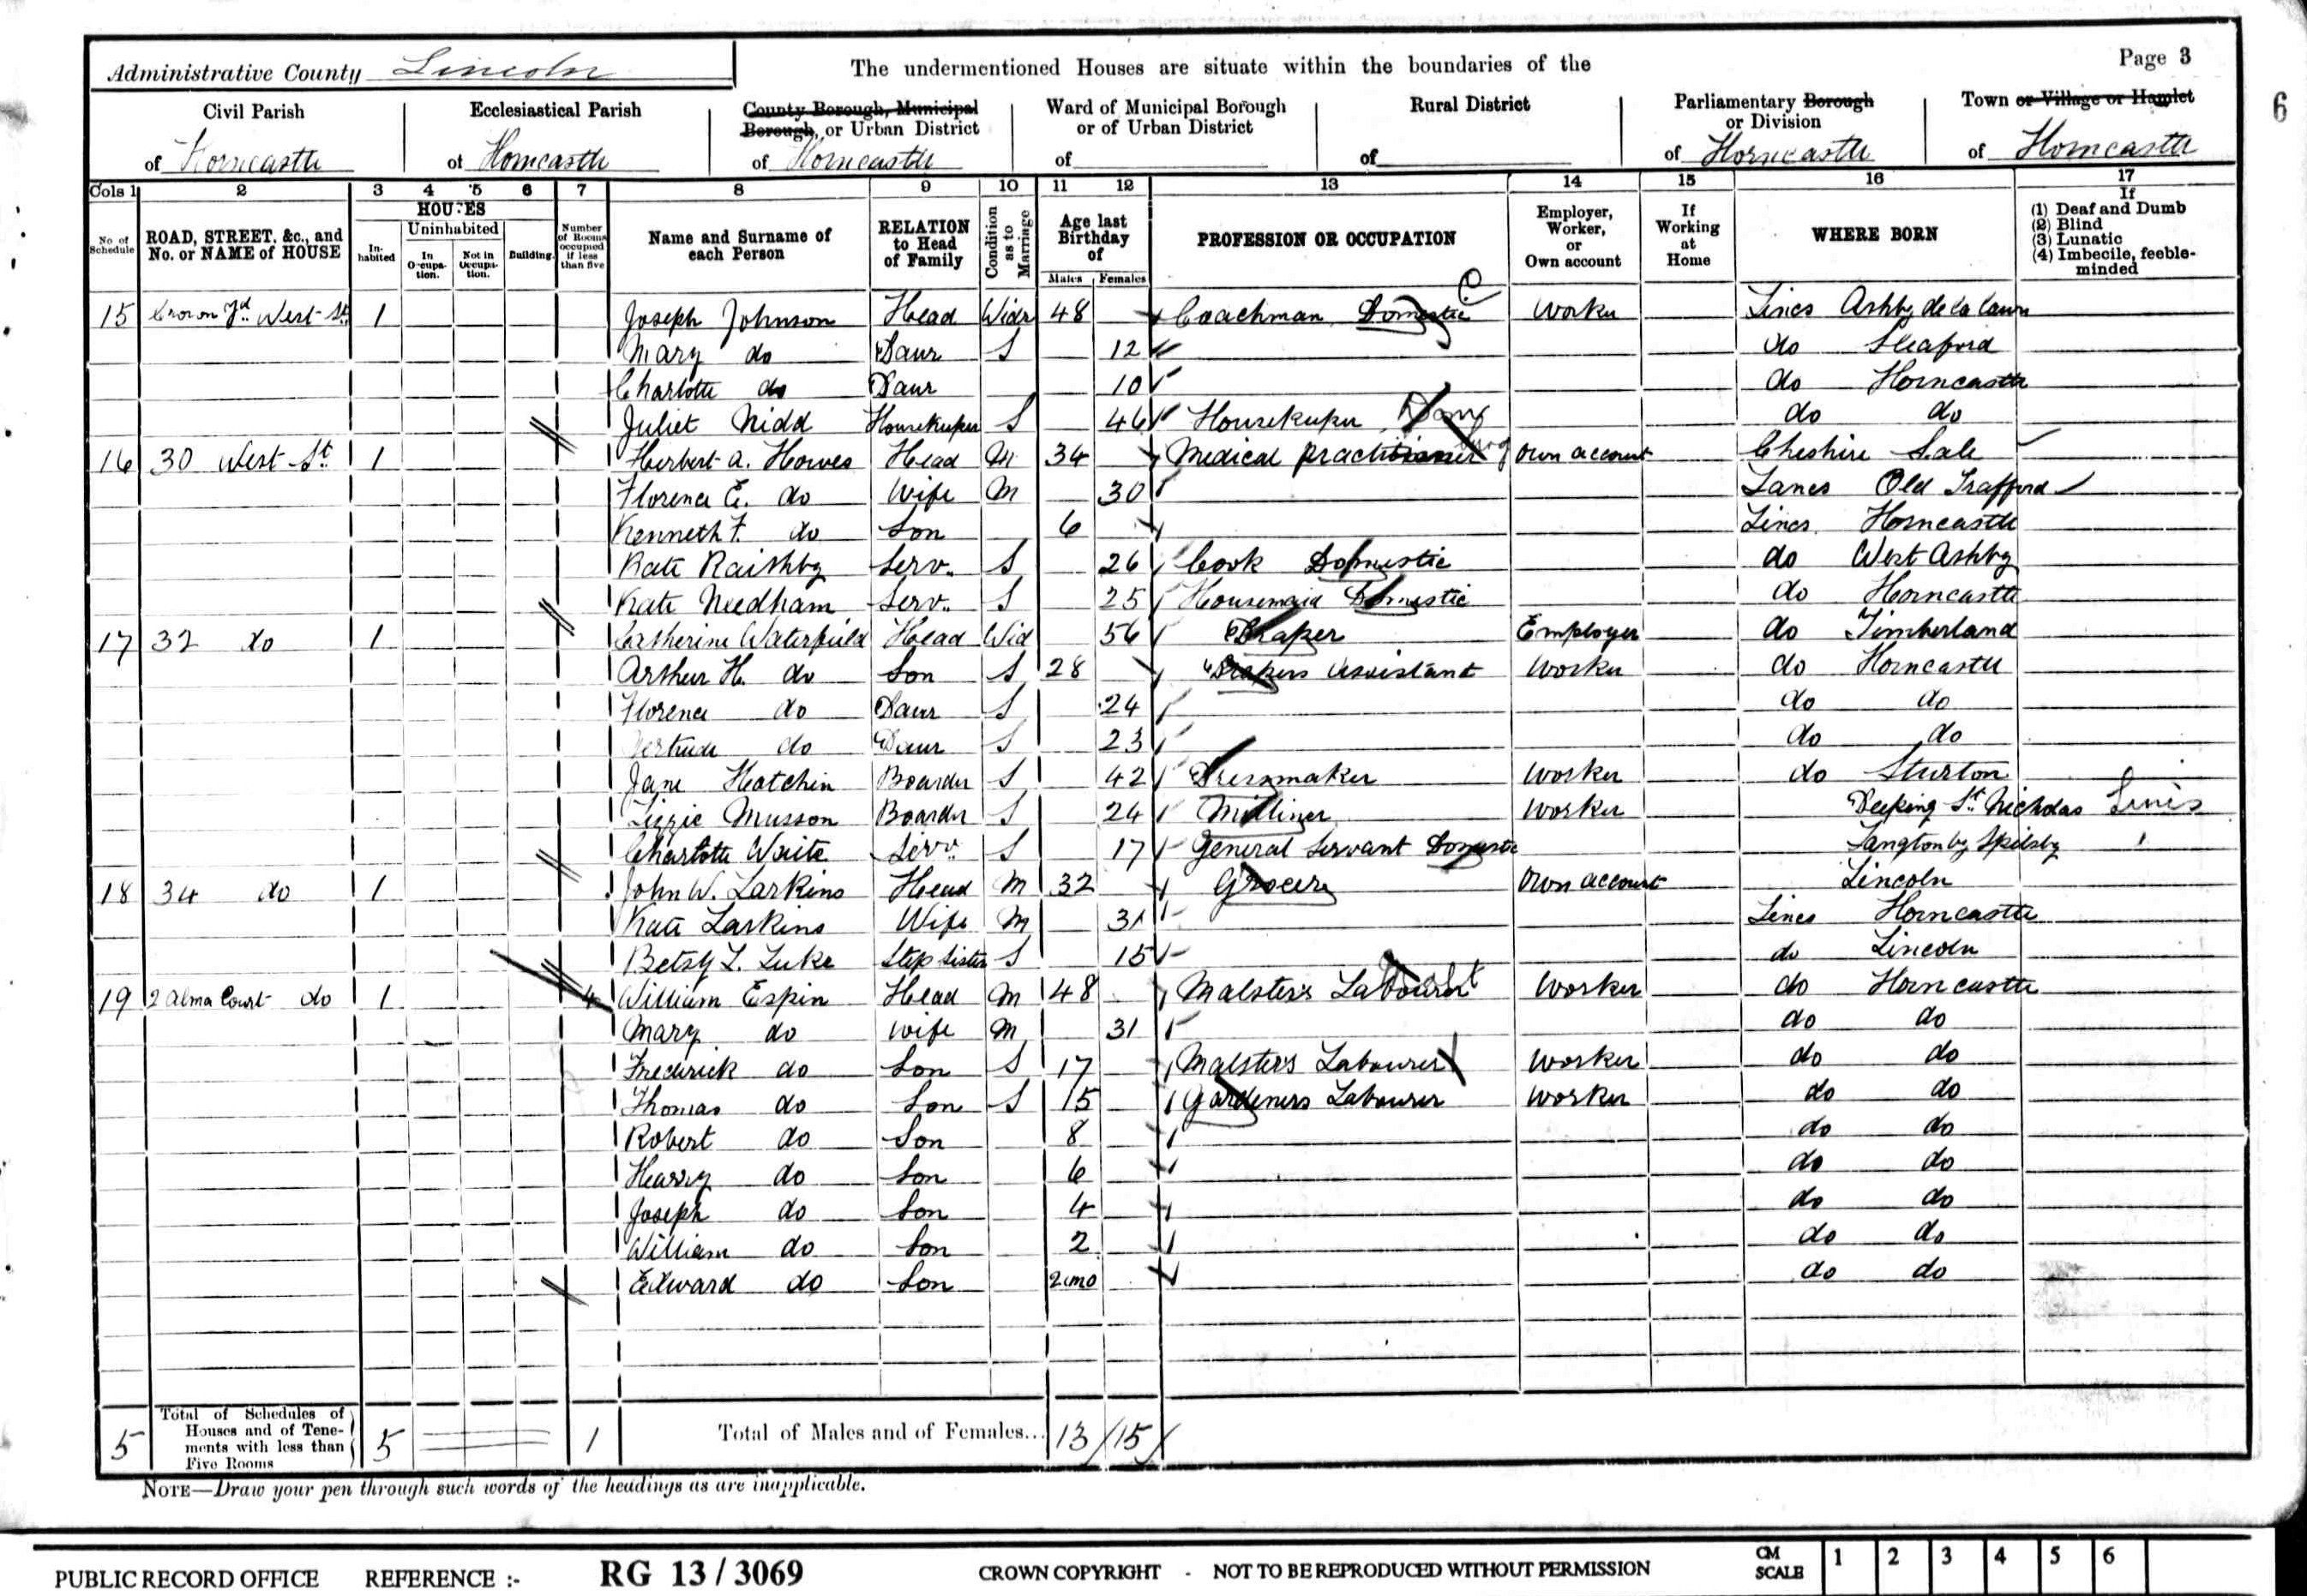 Administrative County Lincoln
The undermentioned Houses are situate within the boundaries of the
Page 3
6
Civil Parish of Horncastle
Ecclesiastical Parish of Horncastle
County Borough, Municipal Borough, or Urban District of Horncastle
Ward of Municipal Borough or of Urban District of
Rural District of
Parliamentary Borough or Division of Horncastle
Town or Village or Hamlet of Horncastle
Cols 1 2 3 4 5 6 7 8 9 10 11 12 13 14 15 16 17
No of Schedule
ROAD, STREET, &c., and No. or NAME of HOUSE
HOUSES
In-habited
Uninhabited
In Occupa-tion.
Not in Occupa-tion.
Building.
Number of Rooms occupied if less than five
Name and Surname of each Person
RELATION to Head of Family
Condition as to Marriage
Age last Birthday of
Males Females
PROFESSION OR OCCUPATION
Employer, Worker, or Own account
If Working at Home
WHERE BORN
If
(1) Deaf and Dumb
(2) Blind
(3) Lunatic
(4) Imbecile, feeble-minded
15 Crown Yd. West St. 1 Joseph Johnson Head Widr 48 Coachman Domestic Worker Lincs Ashby de la Laun
Mary do Daur S 12 do Sleaford
Charlotte do Daur 10 do Horncastle
Juliet Nidd Housekeeper S 46 Housekeeper Dom do do
16 30 West St. 1 Herbert A. Howes Head M 34 Medical Practitioner Own account Cheshire Sale
Florence E. do Wife M 30 Lancs Old Trafford
Kenneth F. do Son 6 Lincs Horncastle
Kate Raithby Serv. S 26 Cook Domestic do West Ashby
Kate Needham Serv. S 25 Housemaid Domestic do Horncastle
17 32 do 1 Catherine Waterfield Head Wid 56 Draper Employer do Timberland
Arthur H. do Son S 28 Drapers Assistant Worker do Horncastle
Florence do Daur S 24 do do
Gertrude do Daur S 23 do do
Jane Hotchin Boarder S 42 Dressmaker Worker do Sturton
Lizzie Musson Boarder S 24 Milliner Worker Deeping St. Nicholas Lincs
Charlotte Waite Serv. S 17 General Servant Domestic Langton by Spilsby "
18 34 do 1 John W. Larkins Head M 32 Grocer Own account Lincoln
Kate Larkins Wife M 31 Lincs Horncastle
Betsy L. Luke Step Sister S 15 do Lincoln
19 2 Alma Court do 1 4 William Espin Head M 48 Malsters Labourer Worker do Horncastle
Mary do Wife M 31 do do
Frederick do Son S 17 Malsters Labourer Worker do do
Thomas do Son S 15 Gardeners Labourer Worker do do
Robert do Son 8 do do
Harry do Son 6 do do
Joseph do Son 4 do do
William do Son 2 do do
Edward do Son 2mo do do
5 Total of Schedules of Houses and of Tene-ments with less than Five Rooms 5 1 Total of Males and of Females... 13 15
NOTE—Draw your pen through such words of the headings as are inapplicable.
PUBLIC RECORD OFFICE REFERENCE :- RG 13 / 3069 CROWN COPYRIGHT - NOT TO BE REPRODUCED WITHOUT PERMISSION CM SCALE 1 2 3 4 5 6